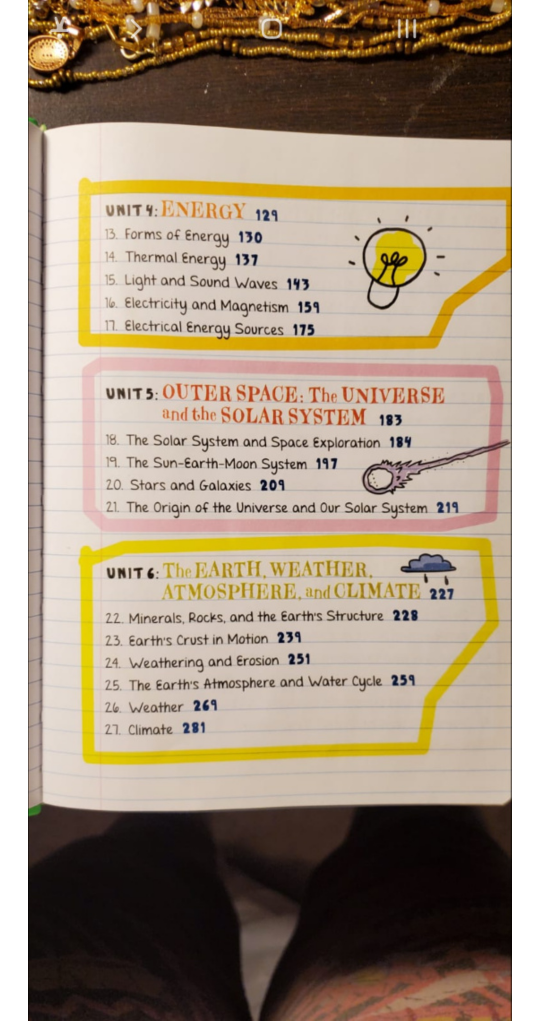 UNIT 4: ENERGY 129
13. Forms of Energy 130
14. Thermal Energy 137
15. Light and Sound Waves 143
16. Electricity and Magnetism 159
17. Electrical Energy Sources 175
UNIT 5: OUTER SPACE: The UNIVERSE
and the SOLAR SYSTEM 183
18. The Solar System and Space Exploration 184
19. The Sun-Earth-Moon System 197
20. Stars and Galaxies 209
21. The Origin of the Universe and Our Solar System 219
UNIT 6: The EARTH, WEATHER,
ATMOSPHERE, and CLIMATE 227
22. Minerals, Rocks, and the Earth's Structure 228
23. Earth's Crust in Motion 239
24. Weathering and Erosion 251
25. The Earth's Atmosphere and Water Cycle 259
26. Weather 269
27. Climate 281